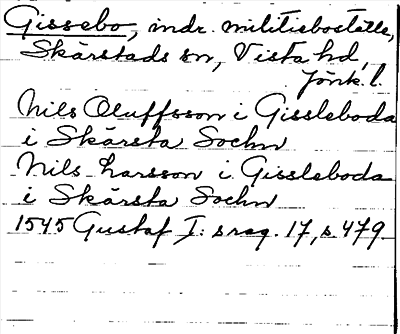 Gissebo, indr. militieboställe,
Skärstads sn, Vista hd,
Jönk. l.
Nils Oluffsson i Gissleboda
i Skärsta Sochn
Nils Larsson i Gissleboda
i Skärsta Sochn
1545 Gustaf I: s reg. 17, s. 479